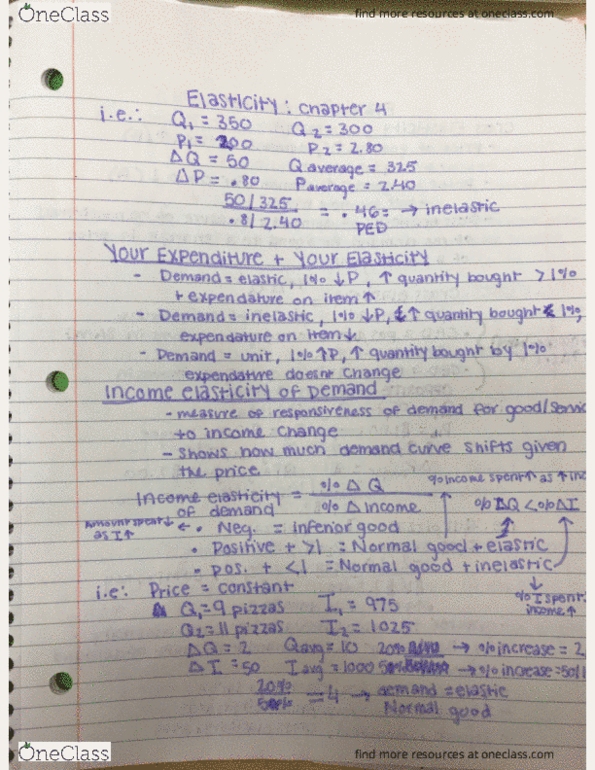 OneClass
find more resources at oneclass.com
Elasticity: Chapter 4
i.e.: Q1 = 350 Q2 = 300
P1 = 200 P2 = 2.80
ΔQ = 50 Q average = 325
ΔP = .80 Paverage = 2.40
50/325
.8/2.40 = .46 = → inelastic
PED
Your Expenditure + Your Elasticity
- Demand = elastic, 1% ↓P, ↑ quantity bought > 1%
+ expendature on item ↑
- Demand = inelastic, 1% ↓P, & ↑ quantity bought < 1%,
expendature on item ↓
- Demand = unit, 1% ↑P, ↑ quantity bought by 1%
expendature doesnt change
Income elasticity of Demand
- measure of responsiveness of demand for good/servic
to income change
- shows how much demand curve shifts given
the price
% income spent ↑ as ↑ inc
Income elasticity of demand = % Δ Q / % Δ income
% ΔQ < % ΔI
Amount spent ↓ as I ↑ ← • Neg. = Inferior good
• Positive + >1 = Normal good + elastic
• pos. + <1 = Normal good + inelastic
% I spent
income ↑
i.e: Price = constant
Q1 = 9 pizzas I1 = 975
Q2 = 11 pizzas I2 = 1025
ΔQ = 2 Qavg = 10 20% → % increase = 2
ΔI = 50 Iavg = 1000 → % increase = 50/1
20%
5% = 4 → demand = elastic
Normal good
OneClass
find more resources at oneclass.com